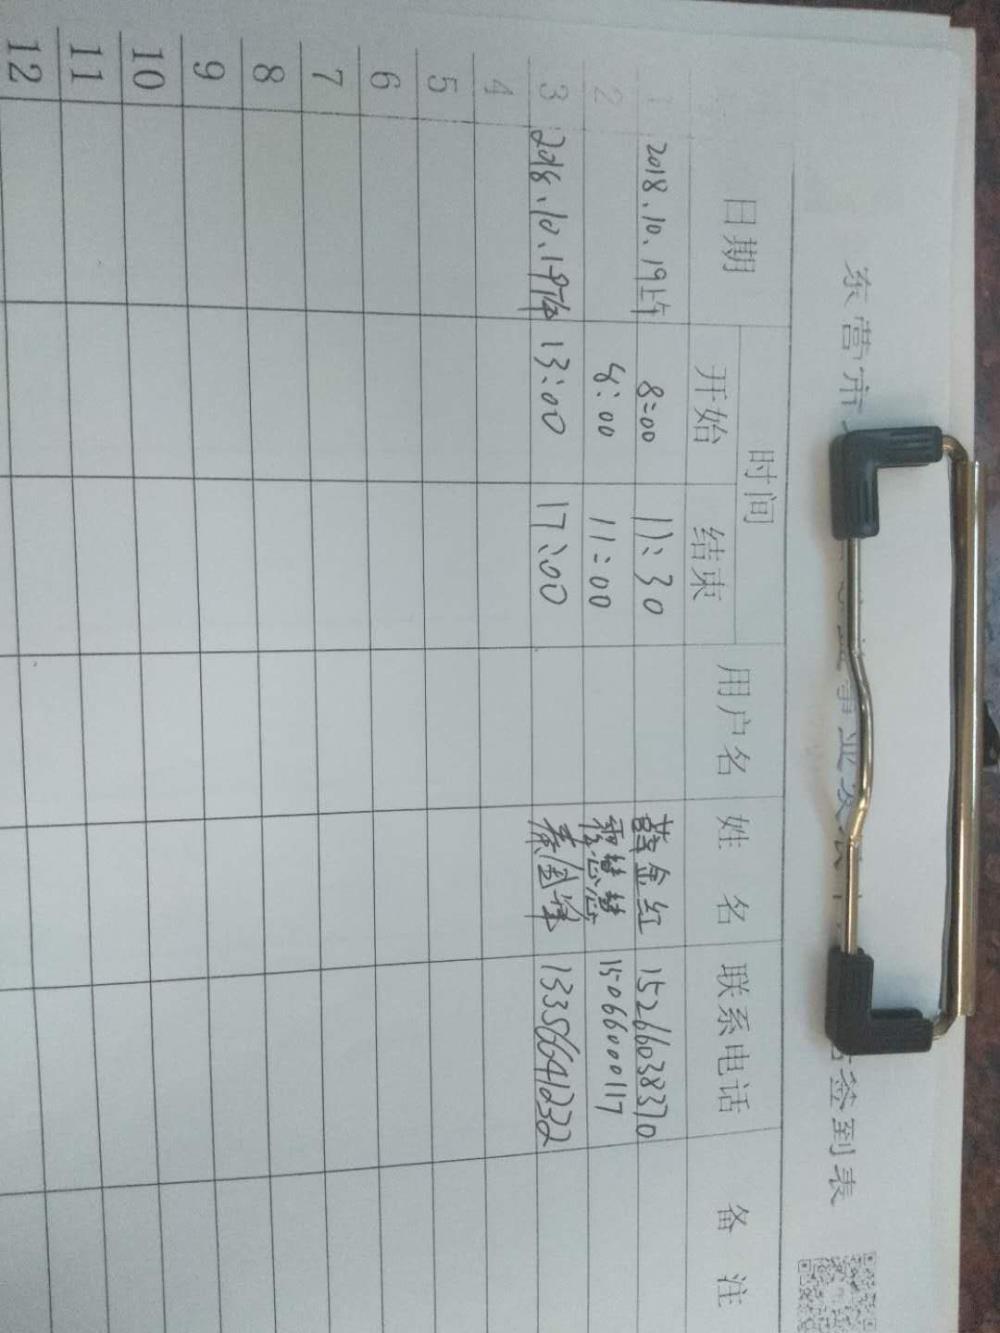 东营市 事业发展中 签到表
日期 时间 用户名 姓名 联系电话 备注
开始 结束
1 2018.10.19上午 8:00 11:30 金红 15266038370
2 8:00 11:00 15066000117
3 2018.10.19下午 13:00 17:00 秦国华 13356641232
4
5
6
7
8
9
10
11
12